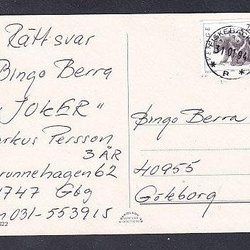 Rättsvar
Bingo Berra
"JOKER"
arkus Persson
3 ÅR
runnehagen 62
747 Gbg
n 031-553915
Bingo Berra
40955
Göteborg